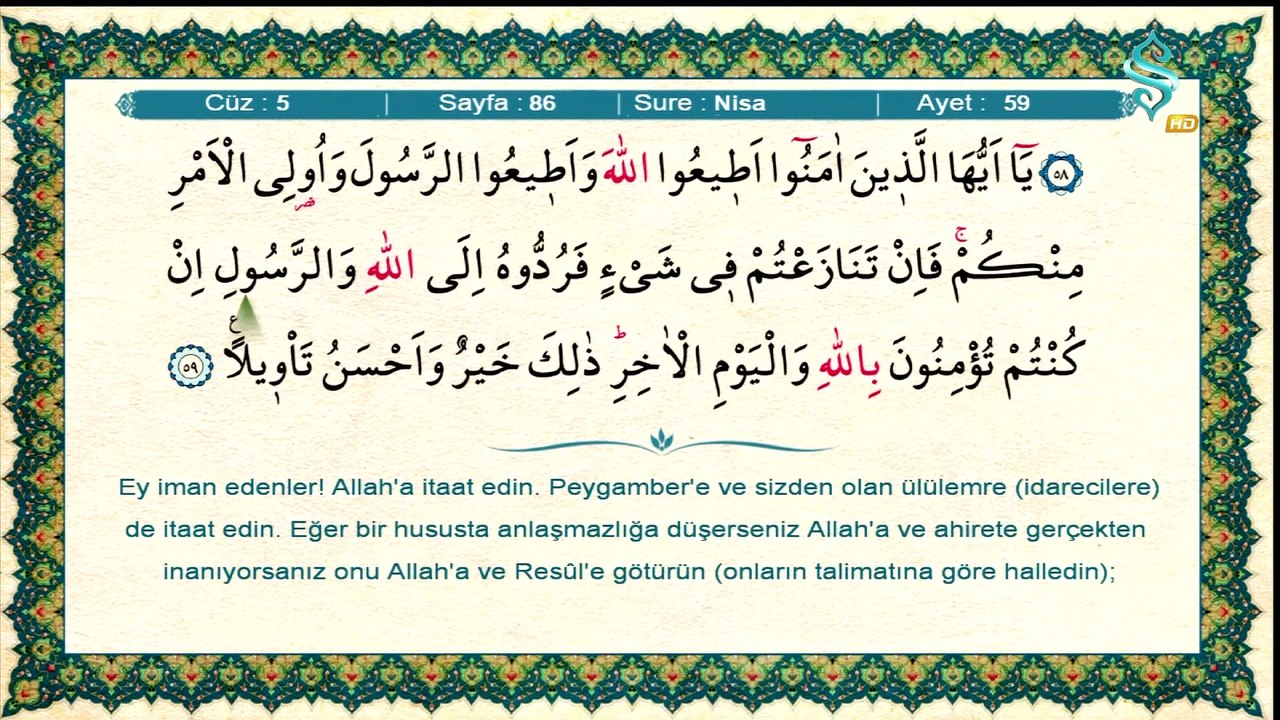 Cüz : 5 | Sayfa : 86 | Sure : Nisa | Ayet : 59
HD
﴿٥٨﴾ يَٓا اَيُّهَا الَّذ۪ينَ اٰمَنُٓوا اَط۪يعُوا اللّٰهَ وَاَط۪يعُوا الرَّسُولَ وَاُو۬لِي الْاَمْرِ
مِنْكُمْۚ فَاِنْ تَنَازَعْتُمْ ف۪ي شَيْءٍ فَرُدُّوهُ اِلَى اللّٰهِ وَالرَّسُولِ اِنْ
كُنْتُمْ تُؤْمِنُونَ بِاللّٰهِ وَالْيَوْمِ الْاٰخِرِۜ ذٰلِكَ خَيْرٌ وَاَحْسَنُ تَأْو۪يلًا۟ ﴿٥٩﴾
Ey iman edenler! Allah'a itaat edin. Peygamber'e ve sizden olan ülülemre (idarecilere)
de itaat edin. Eğer bir hususta anlaşmazlığa düşerseniz Allah'a ve ahirete gerçekten
inanıyorsanız onu Allah'a ve Resûl'e götürün (onların talimatına göre halledin);